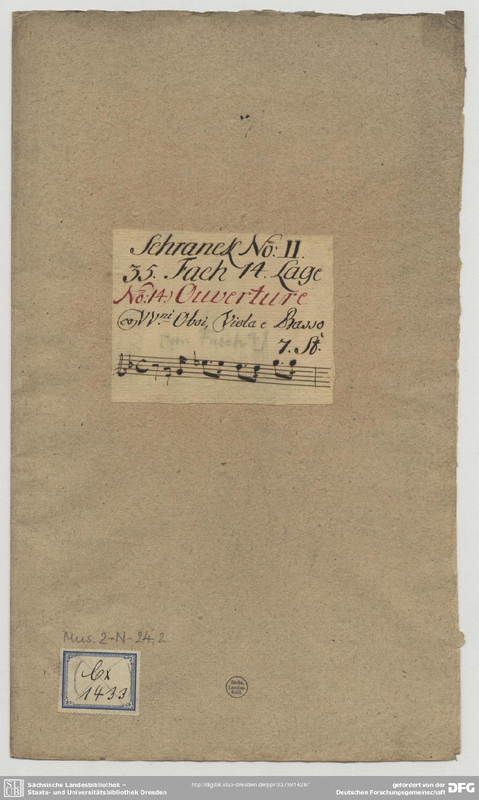 Schranck No: II.
35. Fach 14. Lage
No: 14.) Ouverture
VV.ni Oboi, Viola e Basso
7. St.
Mus. 2-N-24,2
Cx
1433
Sächs.
Landes-
Bibl.
Sächsische Landesbibliothek –
Staats- und Universitätsbibliothek Dresden
gefördert von der
Deutschen Forschungsgemeinschaft
DFG
SLUB